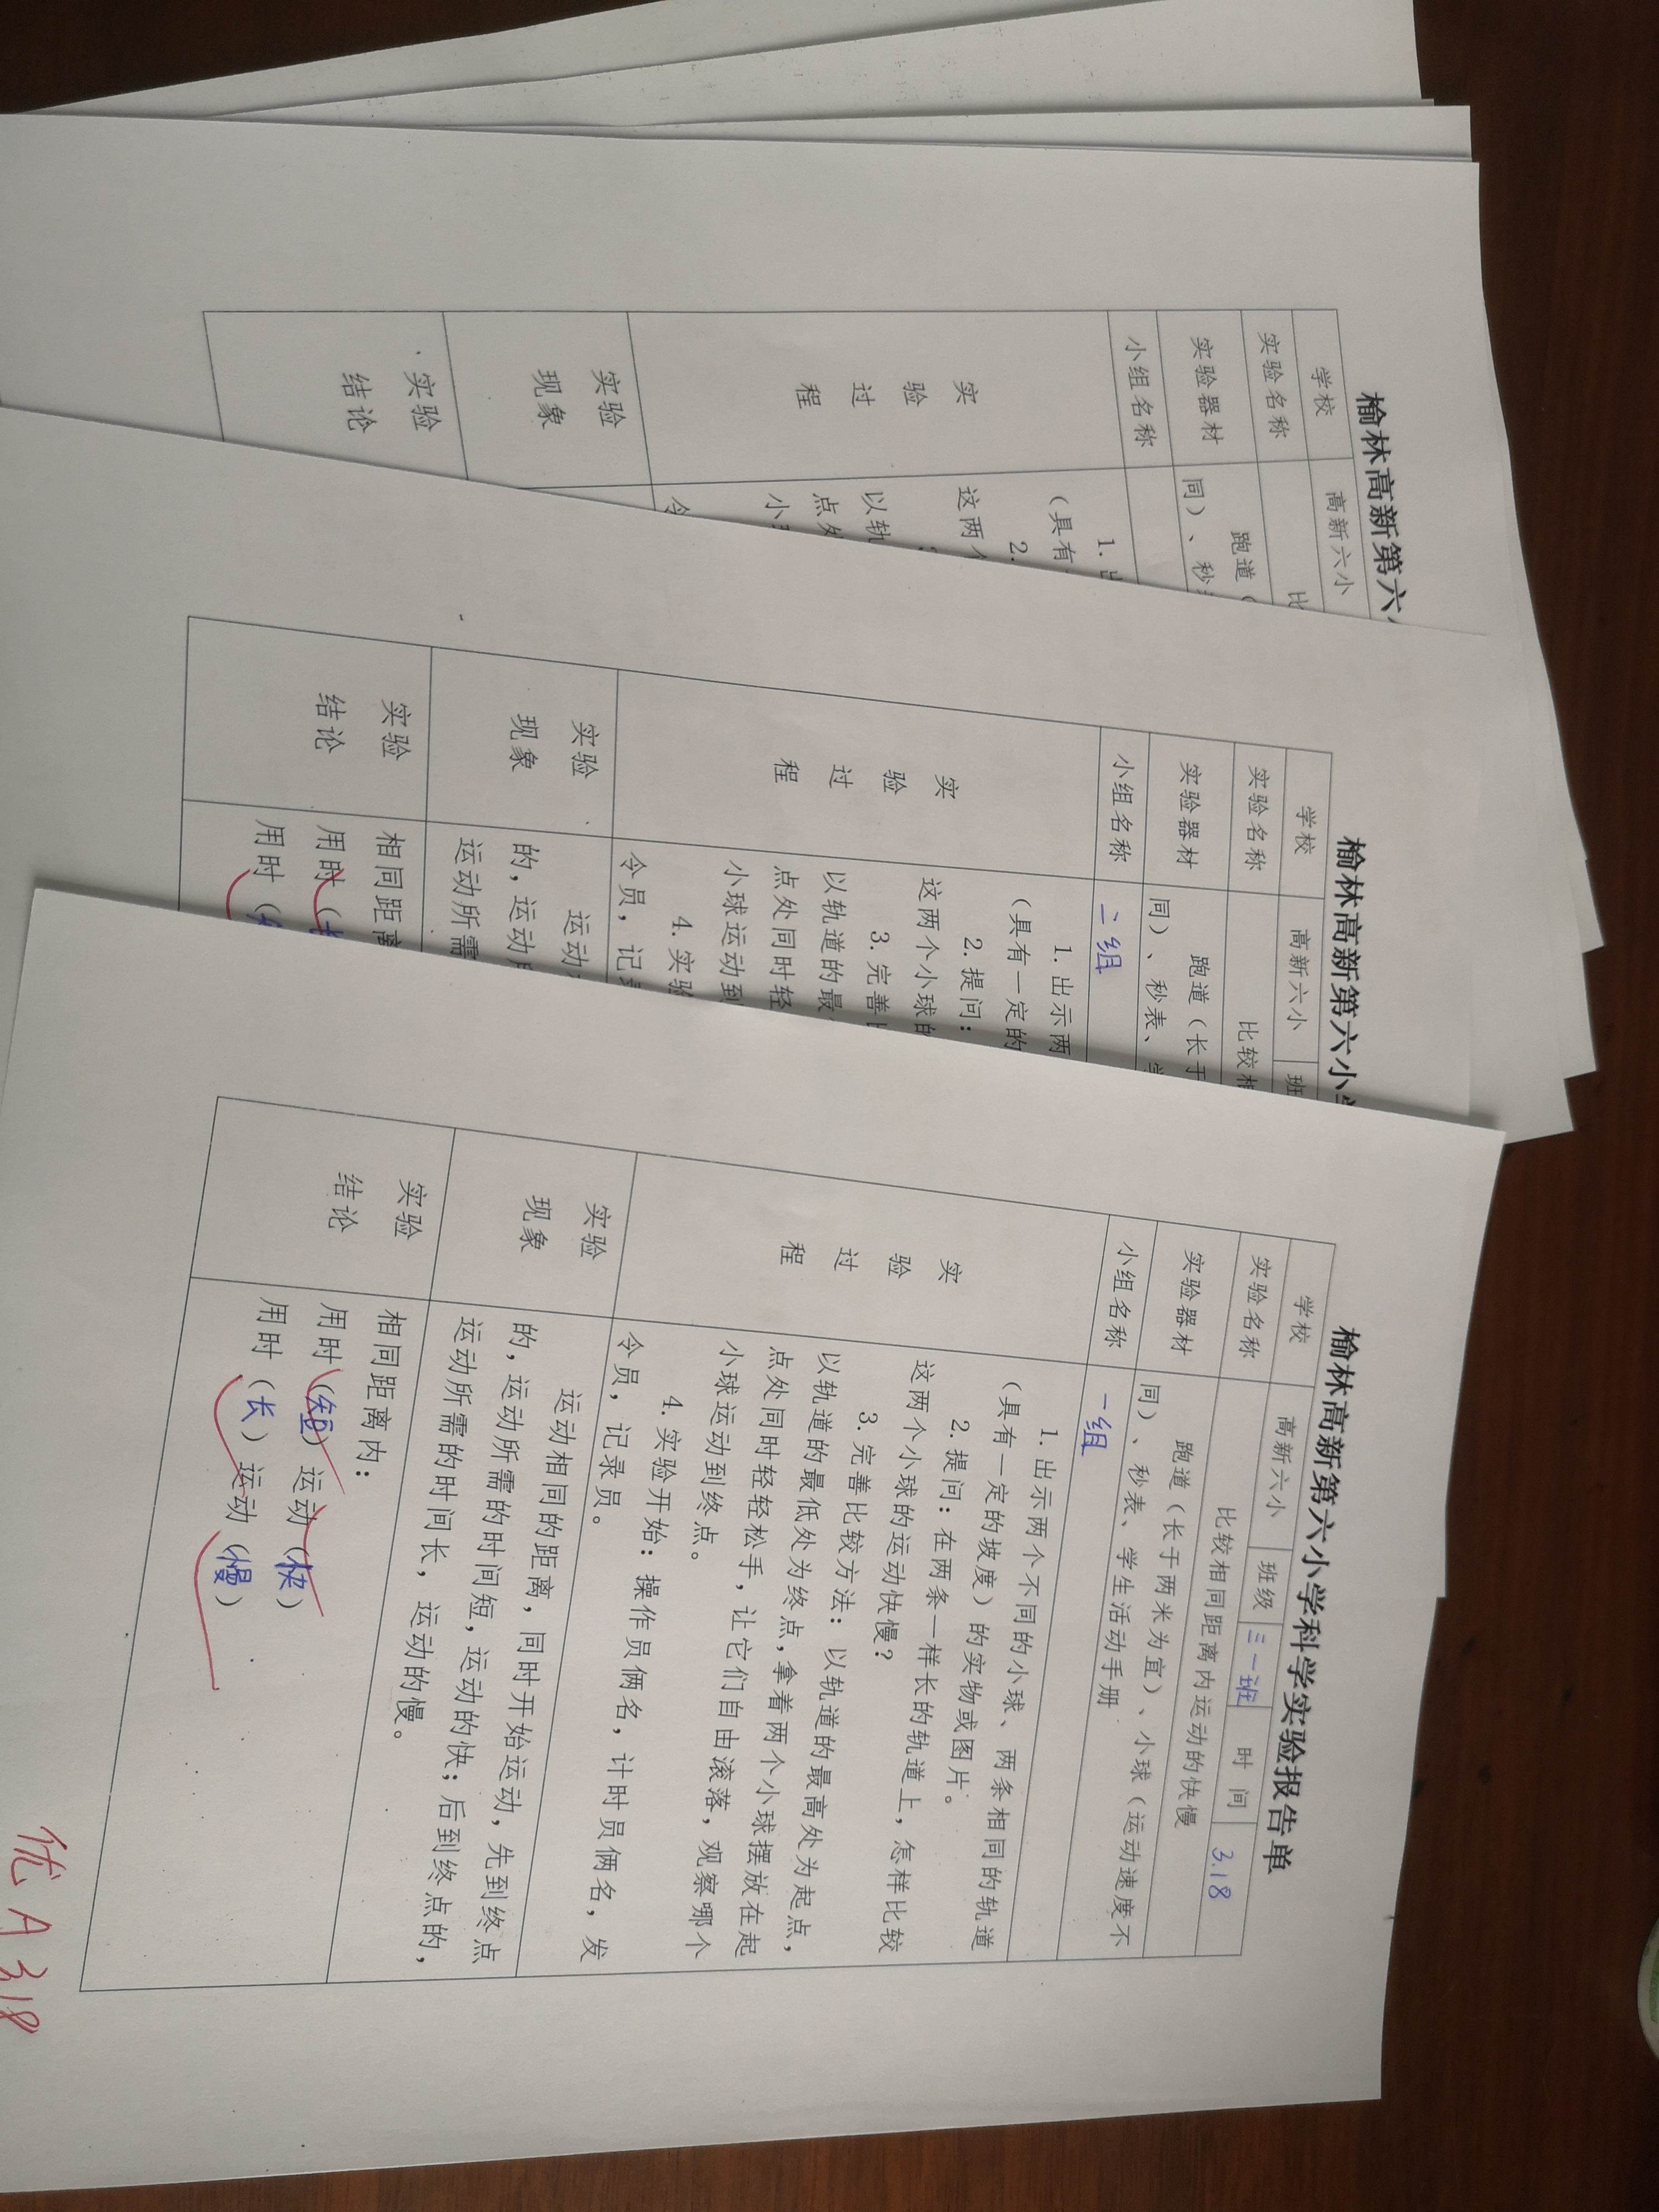 榆林高新第六小学科学实验报告单
学校 高新六小 班级 三一班 时间 3.18
实验名称 比较相同距离内运动的快慢
实验器材 跑道（长于两米为宜）、小球（运动速度不
同）、秒表、学生活动手册
小组名称 一组
实验过程
1. 出示两个不同的小球、两条相同的轨道
（具有一定的坡度）的实物或图片。
2. 提问：在两条一样长的轨道上，怎样比较
这两个小球的运动快慢？
3. 完善比较方法：以轨道的最高处为起点，
以轨道的最低处为终点，拿着两个小球摆放在起
点处同时轻轻松手，让它们自由滚落，观察哪个
小球运动到终点。
4. 实验开始：操作员俩名，计时员俩名，发
令员，记录员。
实验现象
运动相同的距离，同时开始运动，先到终点
的，运动所需的时间短，运动的快；后到终点的，
运动所需的时间长，运动的慢。
实验结论
相同距离内：
用时（短）运动（快）
用时（长）运动（慢）
优 A 3.18
榆林高新第六小
学校 高新六小 班
实验名称 比较
实验器材 跑道（长于
同）、秒表、
小组名称 二组
实验过程
1. 出示两
（具有一定的
2. 提问：
这两个小球的
3. 完善
以轨道的最
点处同时轻
小球运动到
4. 实验
令员，记
实验现象
运动
的，运动
运动所需
实验结论
相同距离
用时（
用时（
榆林高新第六
学校 高新六小
实验名称 比
实验器材 跑道（
同）、秒
小组名称
实验过程
1.
（具有
2.
这两
以轨
点
小
令
实验现象
实验结论